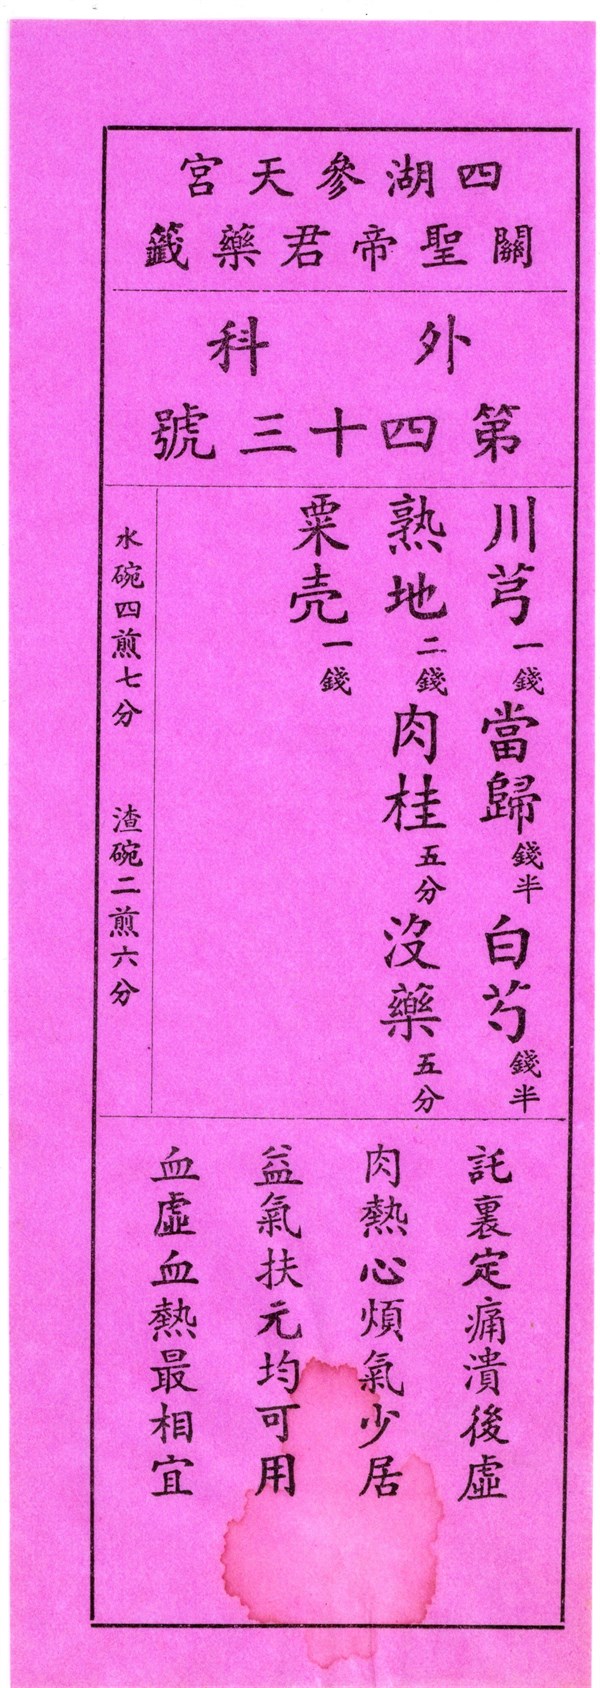 四湖參天宮
關聖帝君藥籤
外科
第四十三號
川芎一錢當歸錢半白芍錢半
熟地二錢肉桂五分沒藥五分
粟壳一錢
水碗四煎七分 渣碗二煎六分
託裏定痛潰後虛
肉熱心煩氣少居
益氣扶元均可用
血虛血熱最相宜